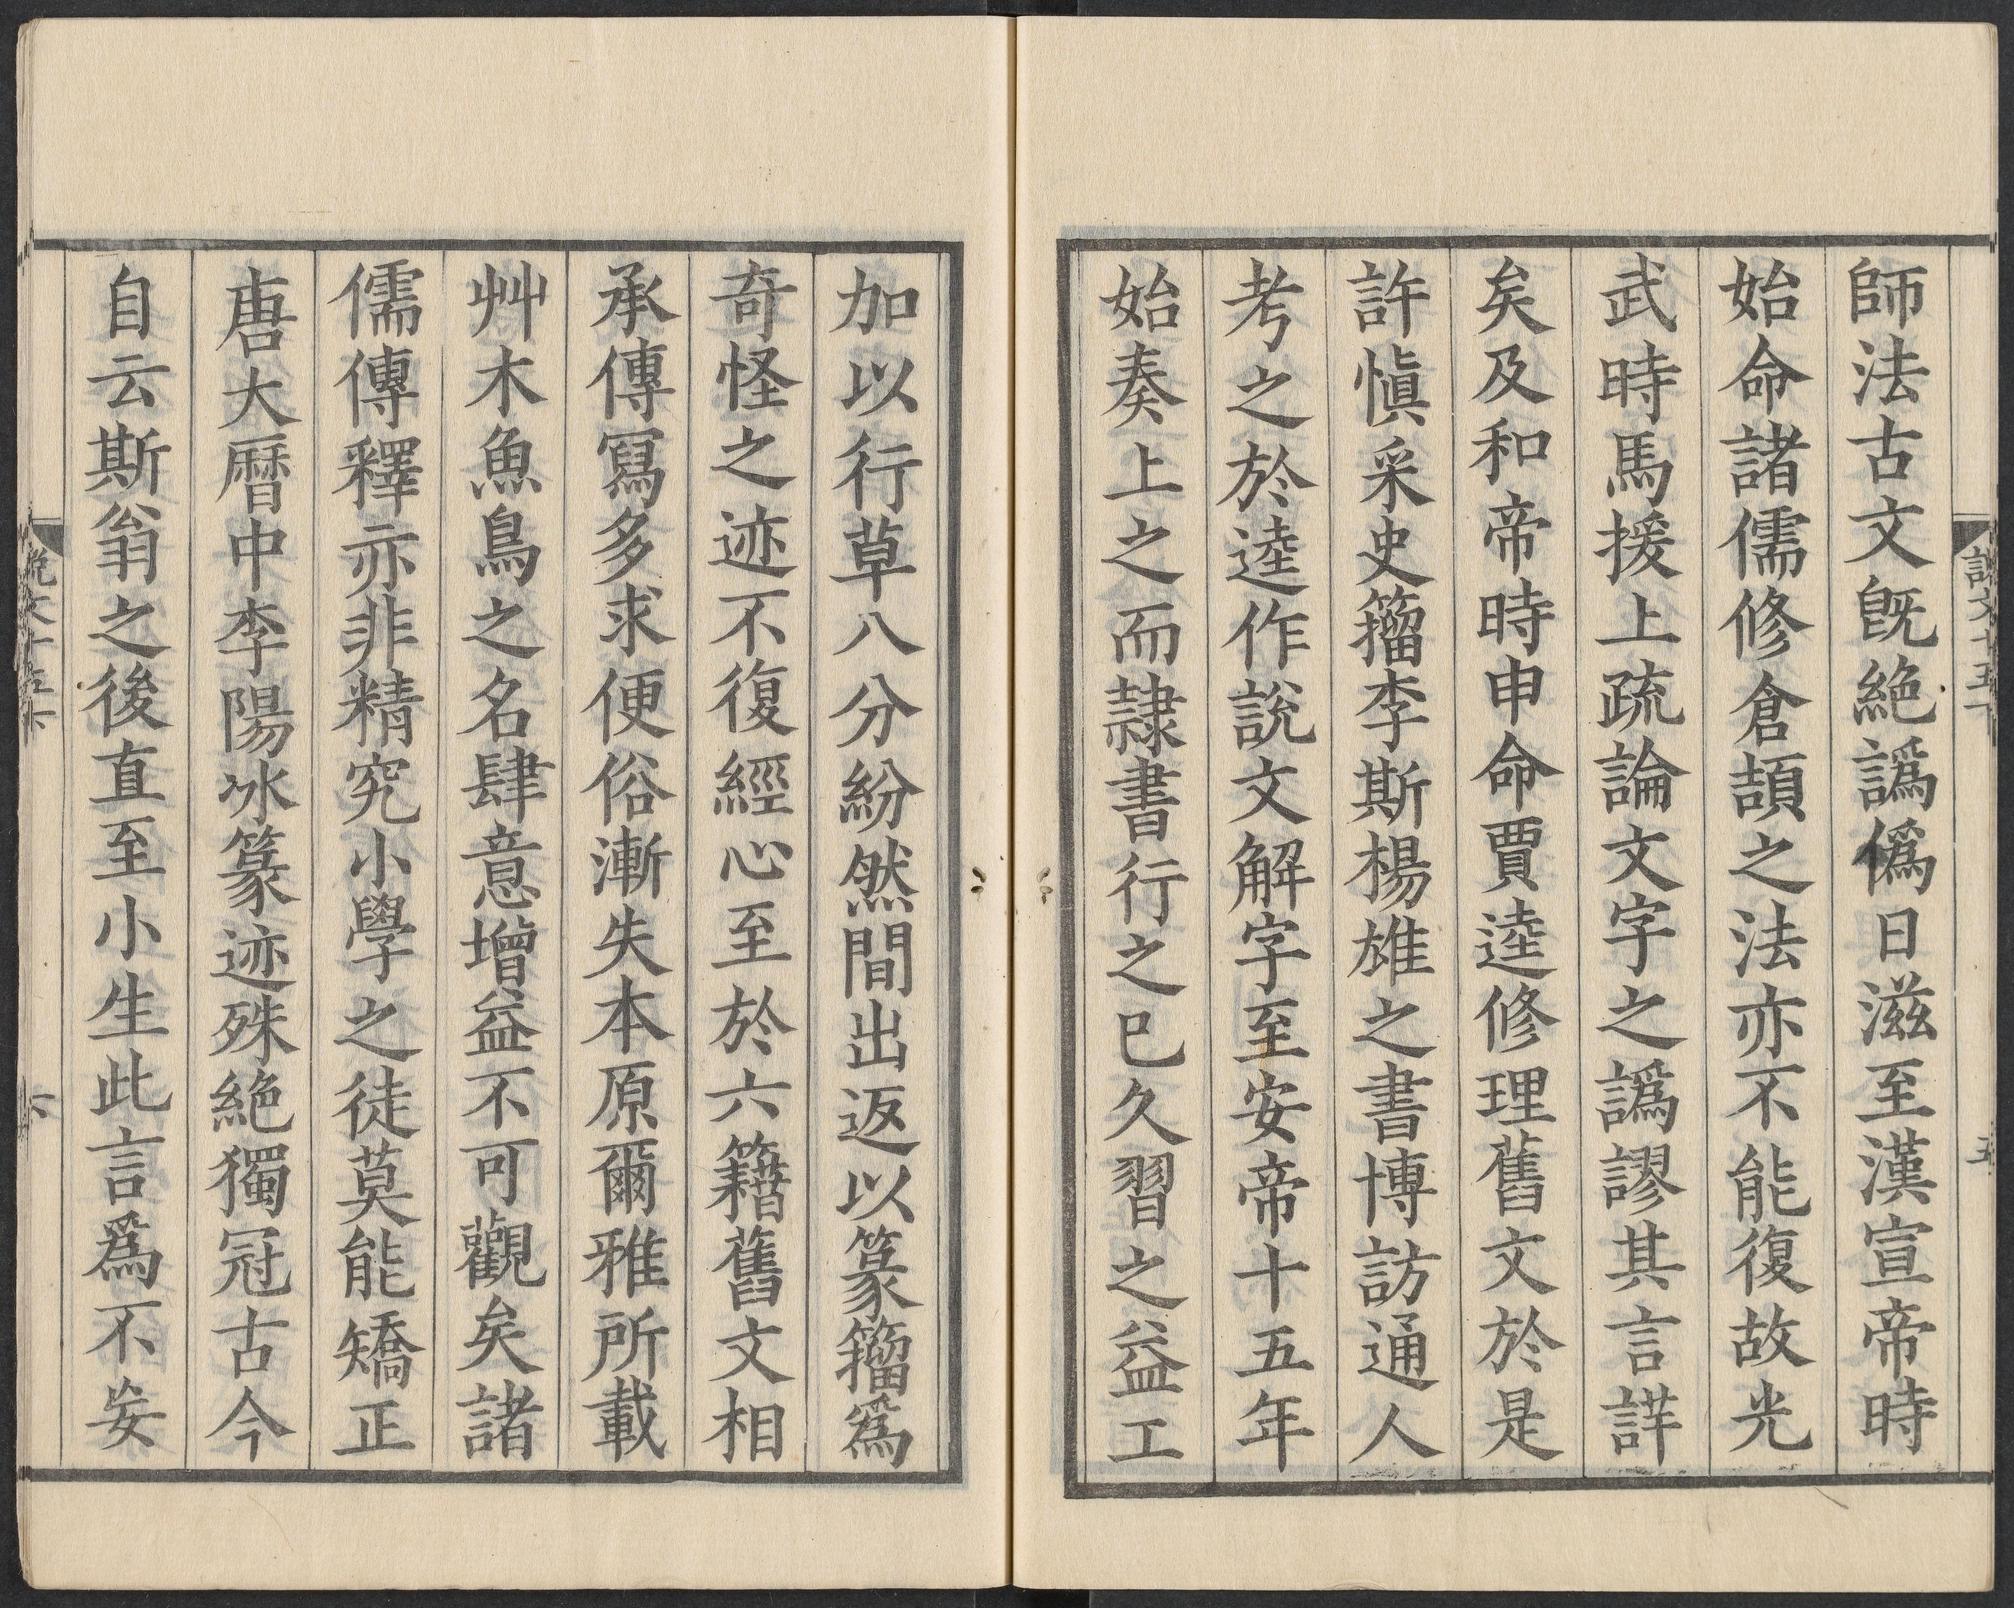 師法古文旣絶譌僞日滋至漢宣帝時
始命諸儒修倉頡之法亦不能復故光
武時馬援上疏論文字之譌謬其言詳
矣及和帝時申命賈逵修理舊文於是
許愼采史籀李斯楊雄之書博訪通人
考之於逵作說文解字至安帝十五年
始奏上之而隷書行之巳久習之益工
加以行草八分紛然間出返以篆籀爲
奇怪之迹不復經心至於六籍舊文相
承傳寫多求便俗漸失本原爾雅所載
艸木魚鳥之名肆意增益不可觀矣諸
儒傳釋亦非精究小學之徒莫能矯正
唐大曆中李陽冰篆迹殊絶獨冠古今
自云斯翁之後直至小生此言爲不妄
說文十五下
五
說文十五下